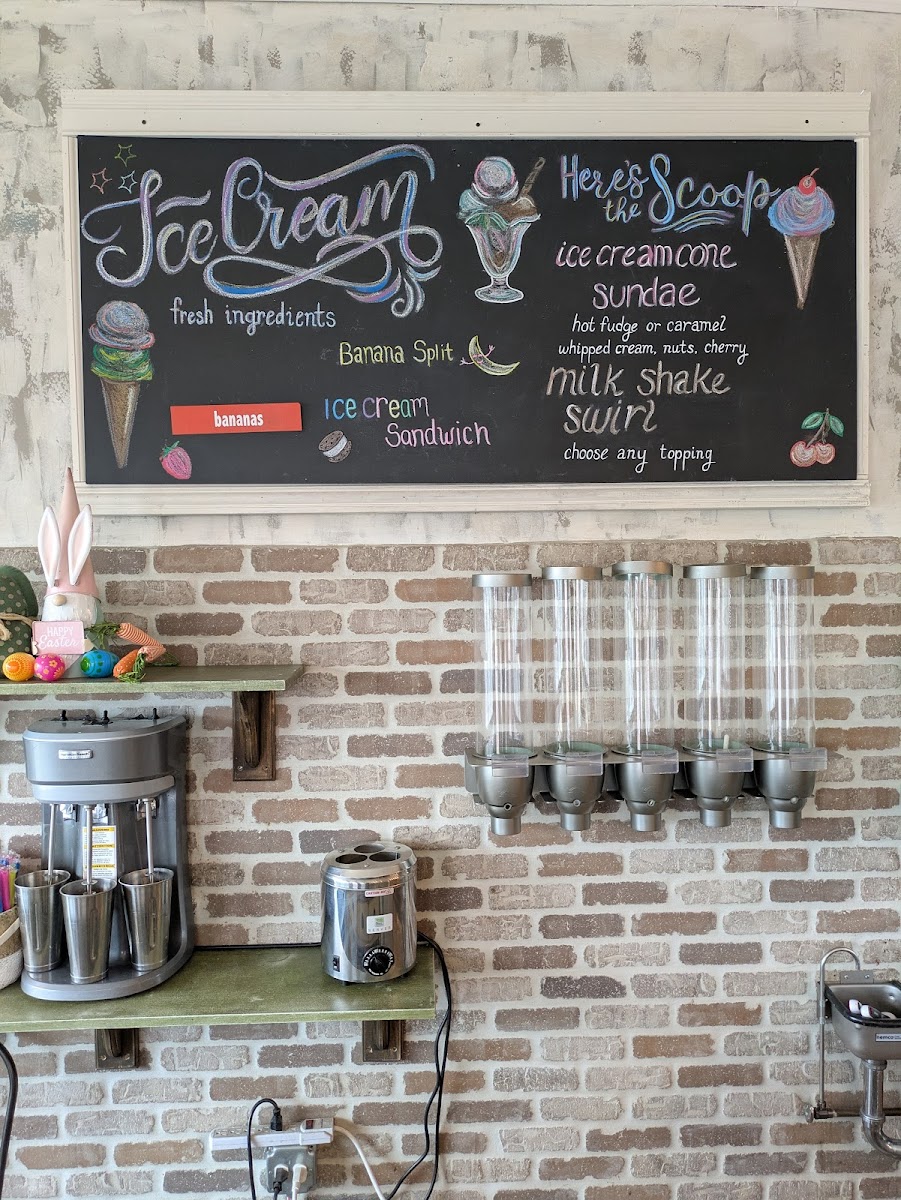 Ice Cream
fresh ingredients
Banana Split
bananas
Ice cream
Sandwich
Here's
the Scoop
ice cream cone
sundae
hot fudge or caramel
whipped cream, nuts, cherry
milk shake
swirl
choose any topping
HAPPY
Easter